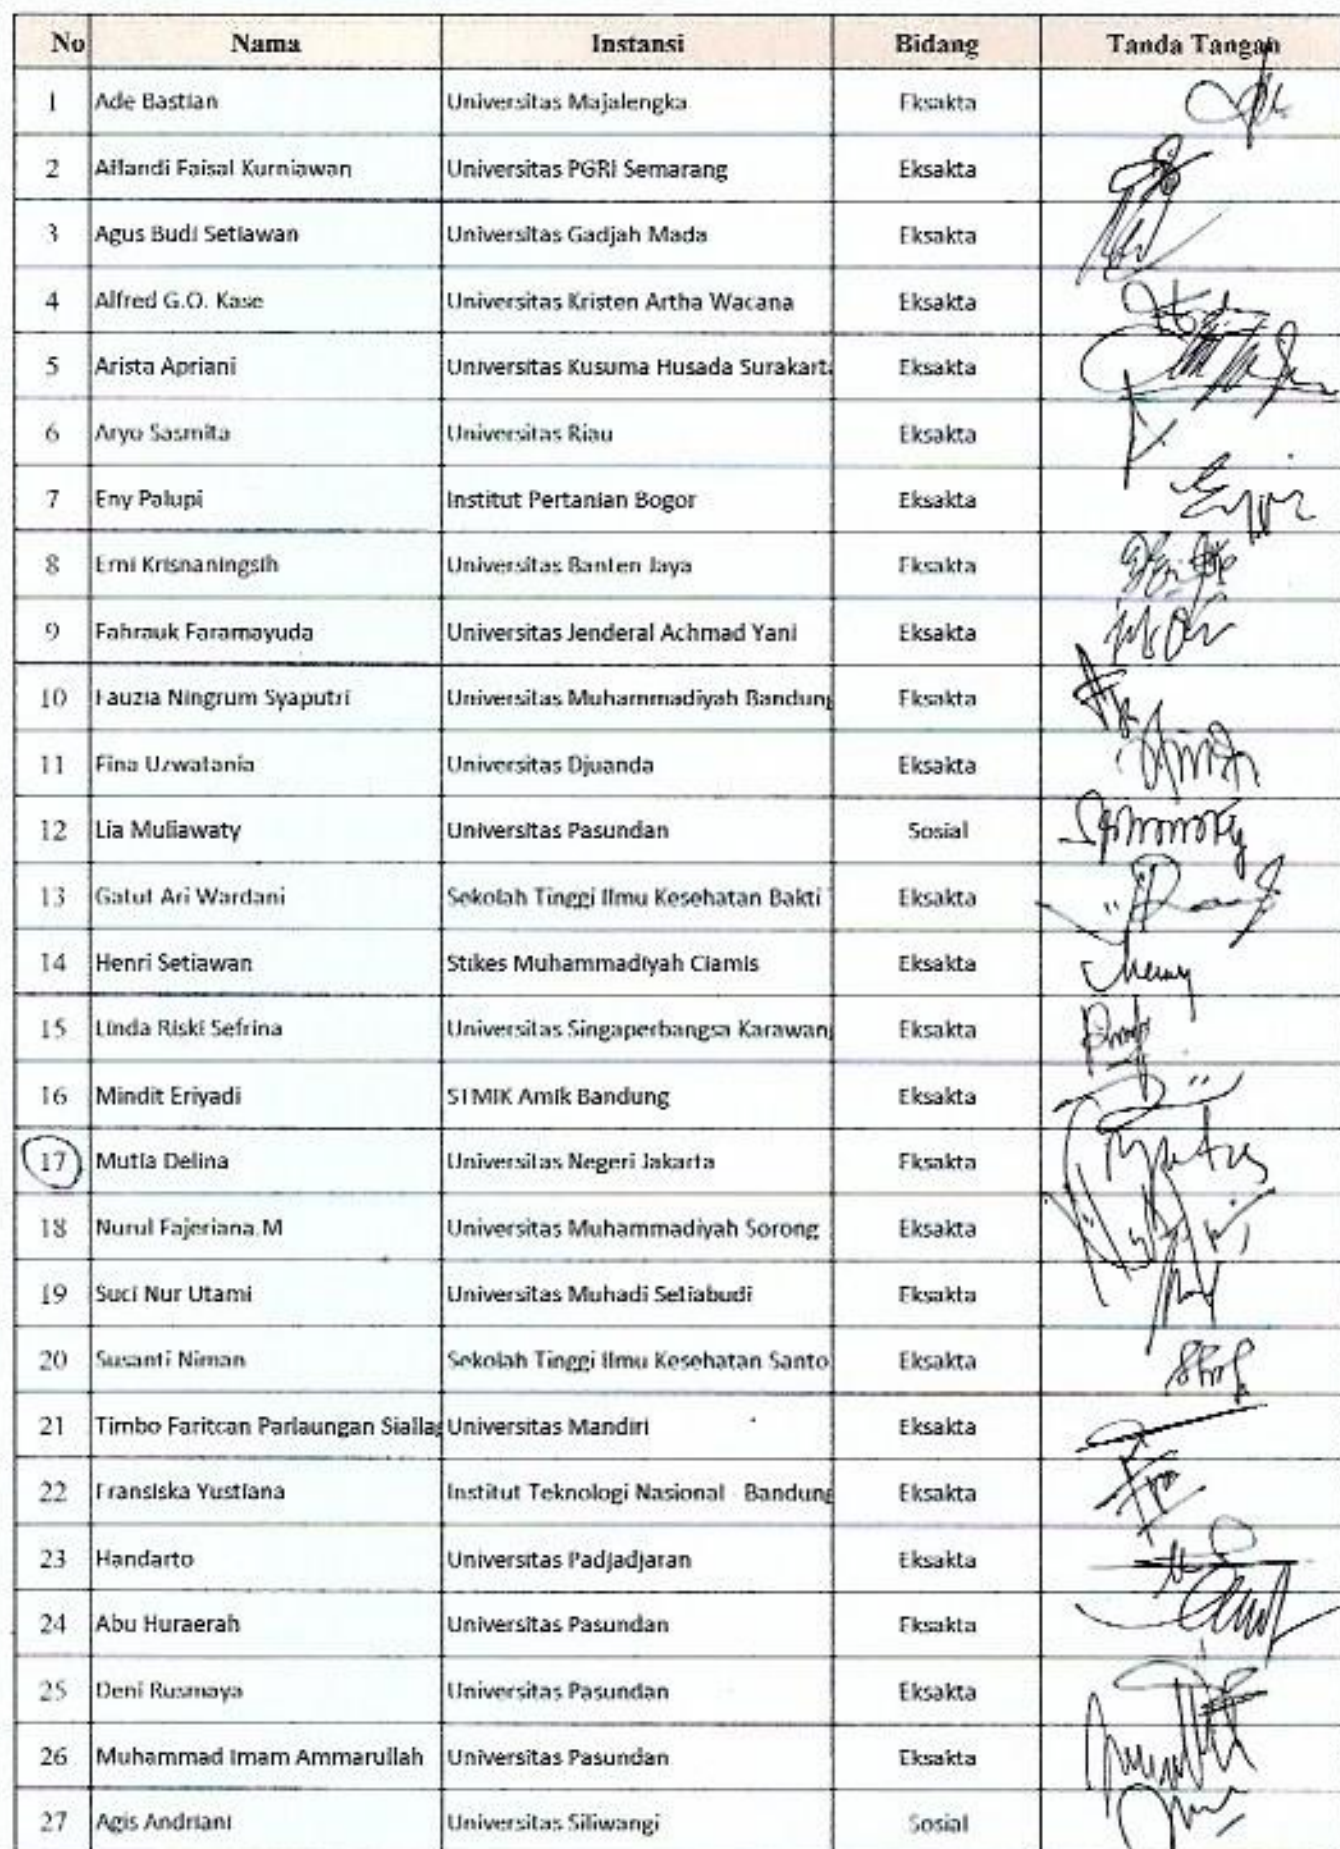 No Nama Instansi Bidang Tanda Tangan
1 Ade Bastian Universitas Majalengka Eksakta
2 Affandi Faisal Kurniawan Universitas PGRI Semarang Eksakta
3 Agus Budi Setiawan Universitas Gadjah Mada Eksakta
4 Alfred G.O. Kase Universitas Kristen Artha Wacana Eksakta
5 Arista Apriani Universitas Kusuma Husada Surakarta Eksakta
6 Aryo Sasmita Universitas Riau Eksakta
7 Eny Palupi Institut Pertanian Bogor Eksakta
8 Erni Krisnaningsih Universitas Banten Jaya Eksakta
9 Fahrauk Faramayuda Universitas Jenderal Achmad Yani Eksakta
10 Fauzia Ningrum Syaputri Universitas Muhammadiyah Bandung Eksakta
11 Fina Uzwatania Universitas Djuanda Eksakta
12 Lia Muliawaty Universitas Pasundan Sosial
13 Gatut Ari Wardani Sekolah Tinggi Ilmu Kesehatan Bakti Eksakta
14 Henri Setiawan Stikes Muhammadiyah Ciamis Eksakta
15 Linda Riski Sefrina Universitas Singaperbangsa Karawang Eksakta
16 Mindit Eriyadi STMIK Amik Bandung Eksakta
17 Mutia Delina Universitas Negeri Jakarta Eksakta
18 Nurul Fajeriana.M Universitas Muhammadiyah Sorong Eksakta
19 Suci Nur Utami Universitas Muhadi Setiabudi Eksakta
20 Susanti Niman Sekolah Tinggi Ilmu Kesehatan Santo Eksakta
21 Timbo Faritcan Parlaungan Siallag Universitas Mandiri Eksakta
22 Fransiska Yustiana Institut Teknologi Nasional Bandung Eksakta
23 Handarto Universitas Padjadjaran Eksakta
24 Abu Huraerah Universitas Pasundan Eksakta
25 Deni Rusmaya Universitas Pasundan Eksakta
26 Muhammad Imam Ammarullah Universitas Pasundan Eksakta
27 Agis Andriani Universitas Siliwangi Sosial